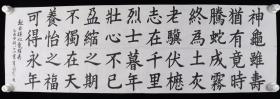 神龜雖壽
猶有竟時
騰蛇成霧
終為土灰
老驥伏櫪
志在千里
烈士暮年
壯心不已
盈縮之期
不但在天
養怡之福
可得永年